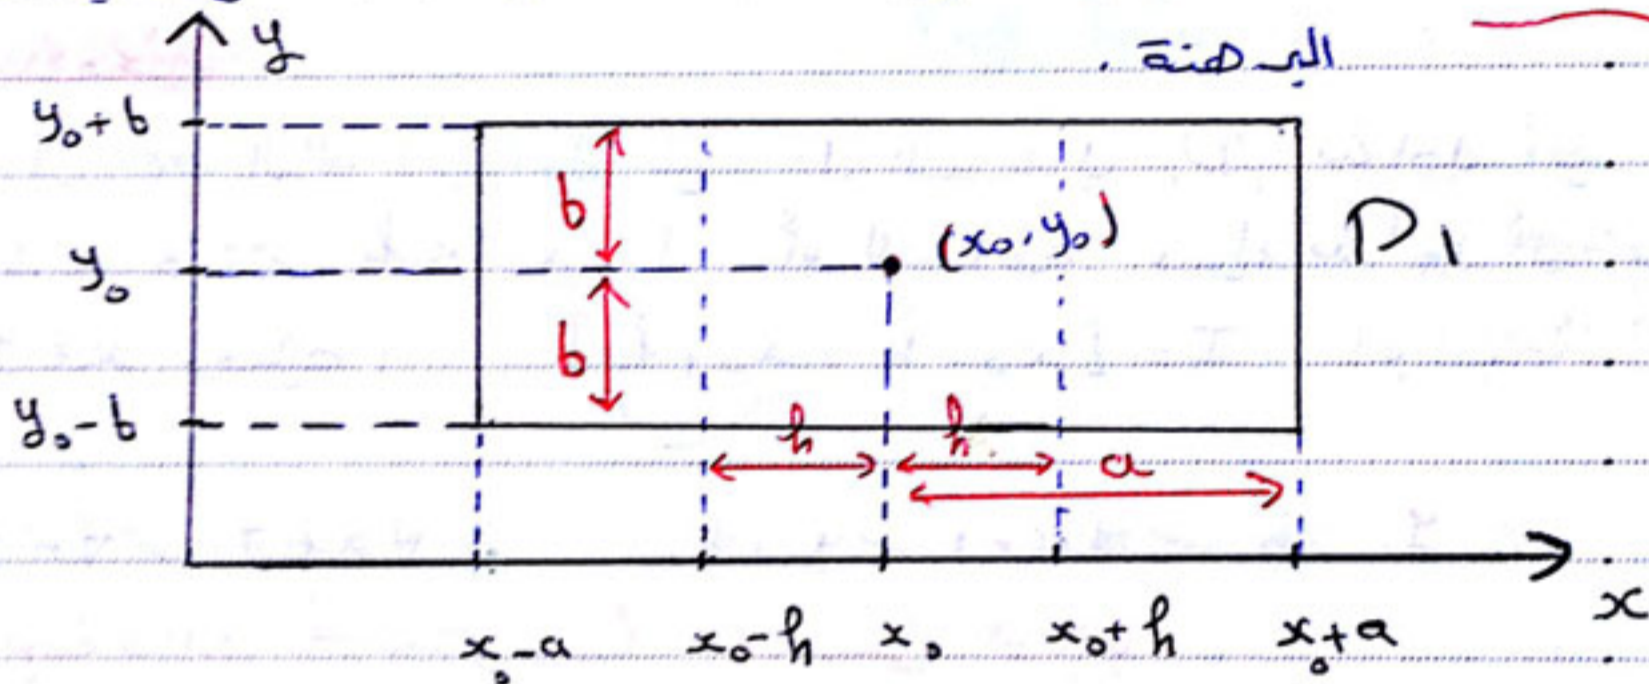 البرهنة .
y
y₀+b
b
(x₀, y₀)
D₁
y₀
b
y₀-b
h
h
a
x
x₀-a
x₀-h
x₀
x₀+h
x₀+a